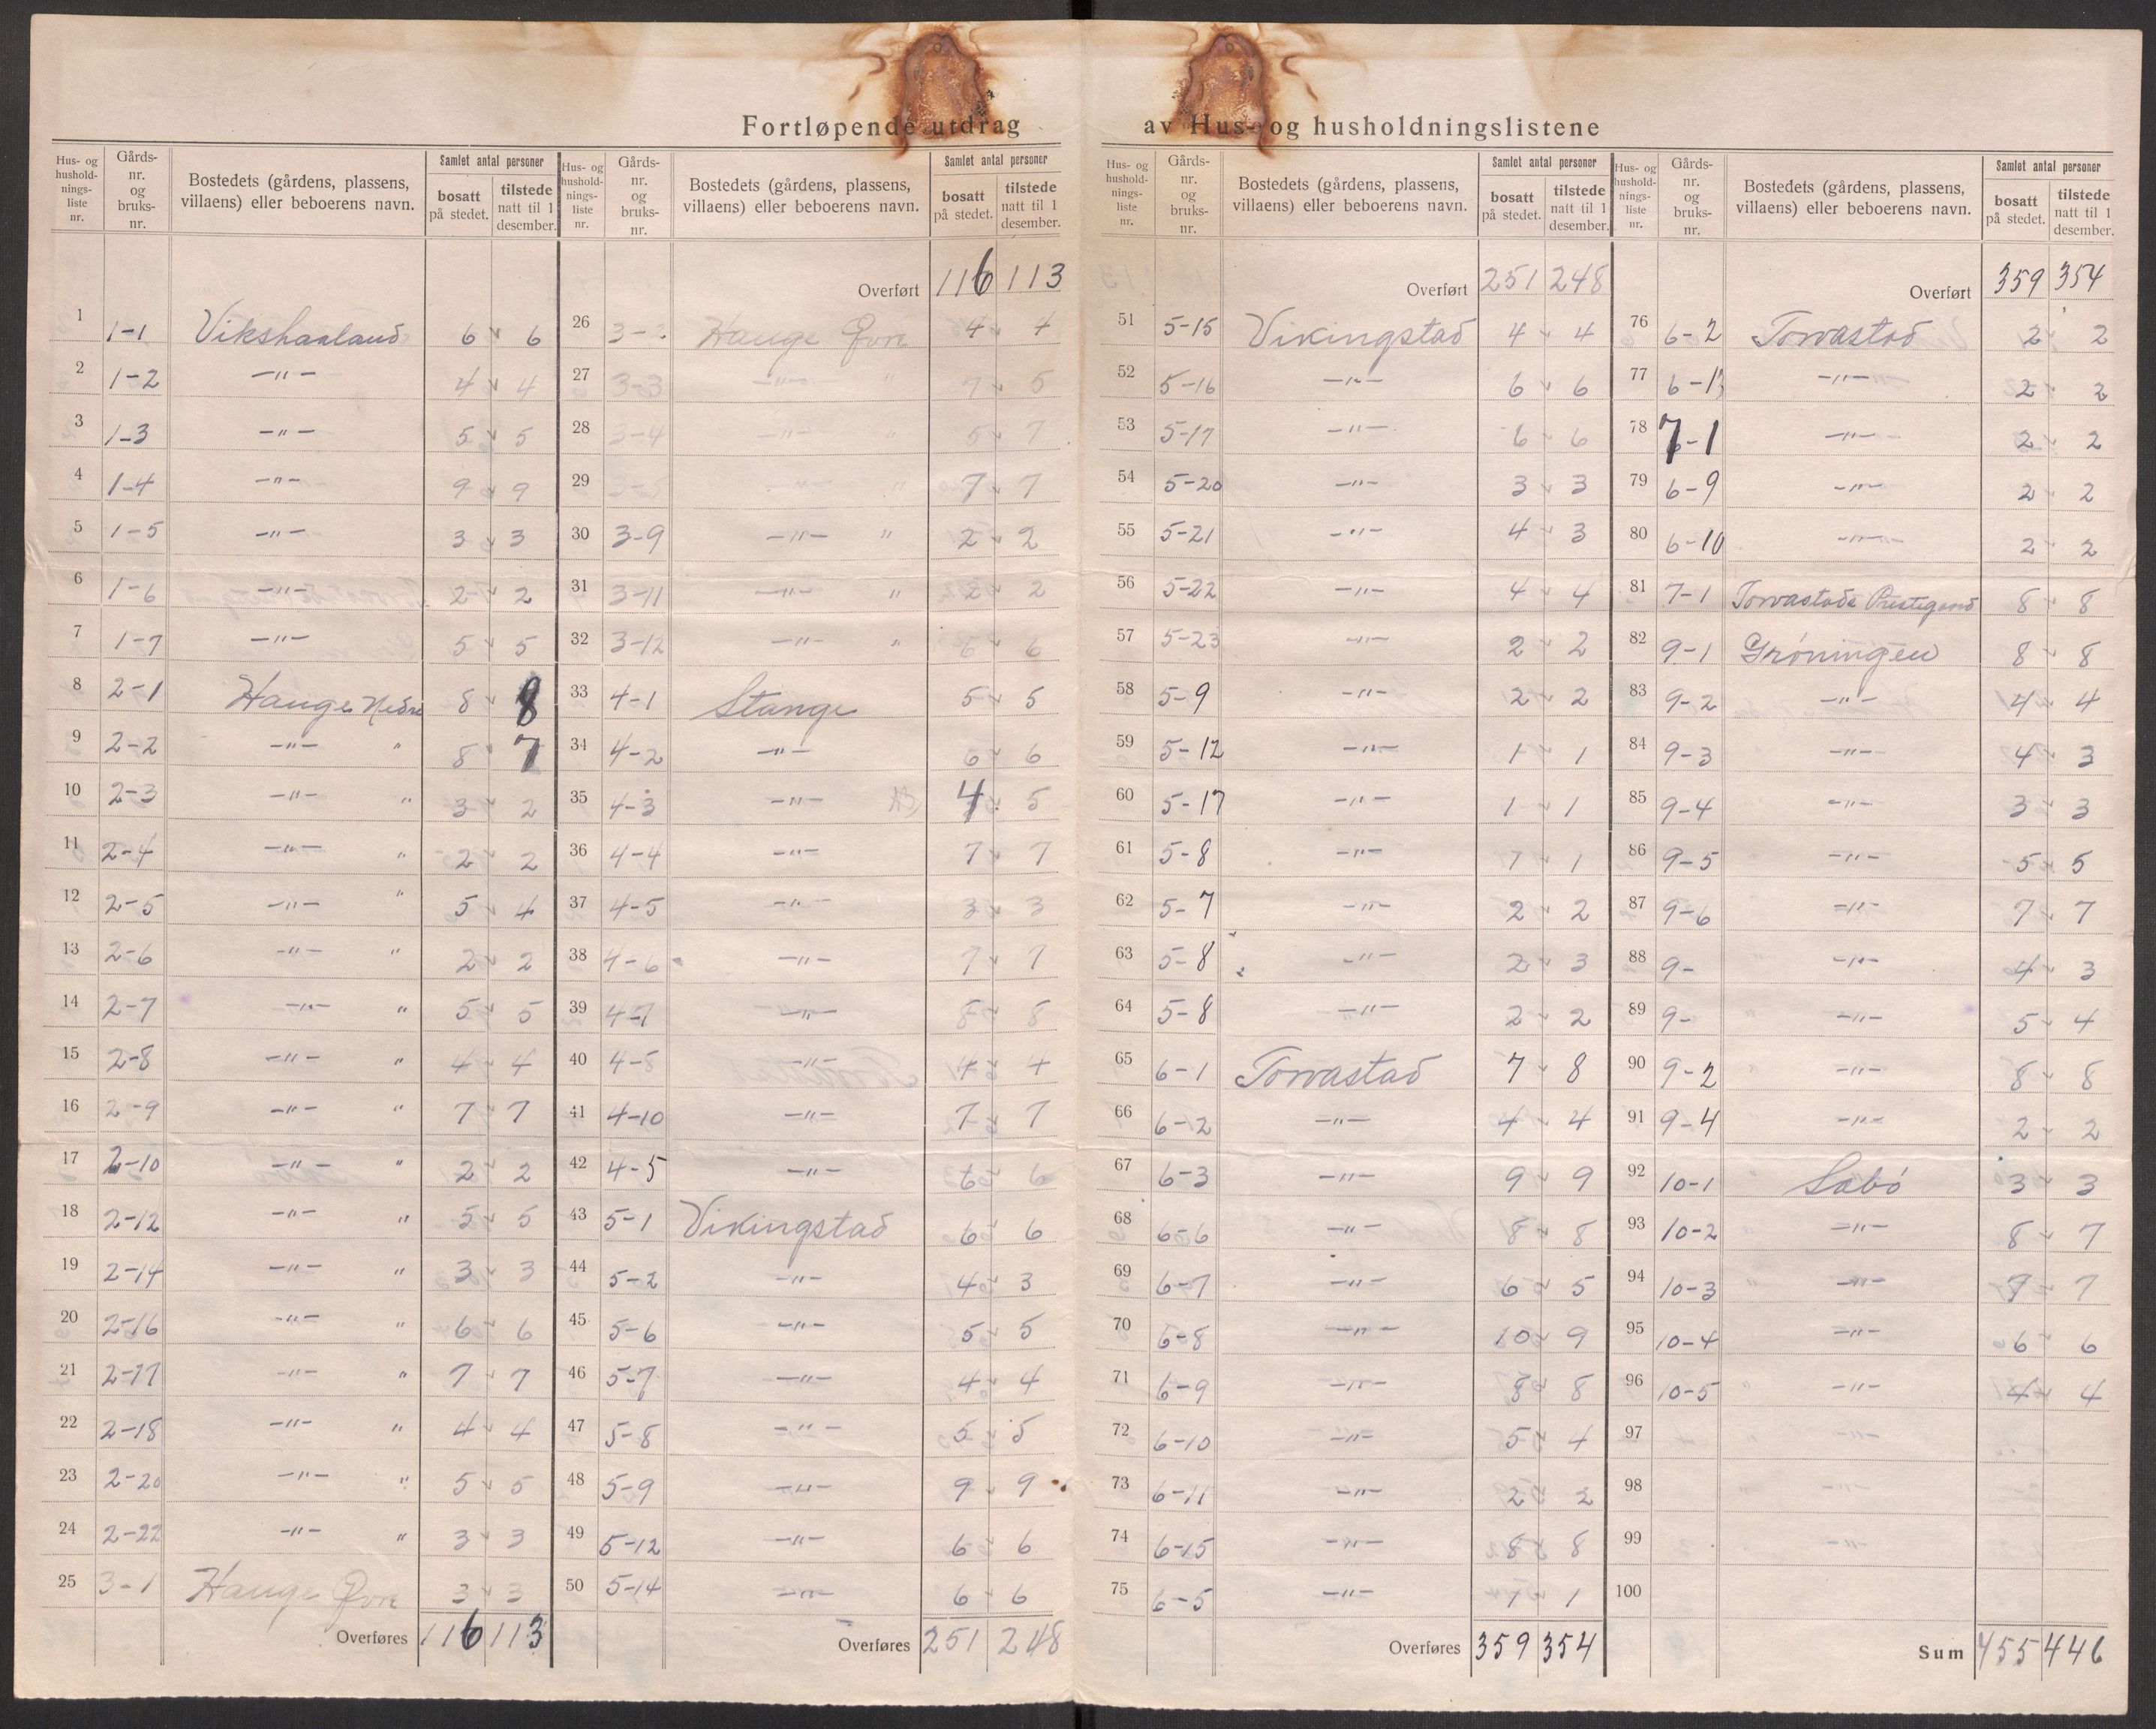 Fortløpende utdrag av Hus- og husholdningslistene
Hus- og hushold-nings-liste nr. | Gårds-nr. og bruks-nr. | Bostedets (gårdens, plassens, villaens) eller beboerens navn. | Samlet antal personer | bosatt på stedet. | tilstede natt til 1 desember.
1 1-1 Vikshaaland 6 6
2 1-2 -"- 4 4
3 1-3 -"- 5 5
4 1-4 -"- 9 9
5 1-5 -"- 3 3
6 1-6 -"- 2 2
7 1-7 -"- 5 5
8 2-1 Hauge Nedre 8 8
9 2-2 -"- " 8 7
10 2-3 -"- " 3 2
11 2-4 -"- " 2 2
12 2-5 -"- " 5 4
13 2-6 -"- " 2 2
14 2-7 -"- " 5 5
15 2-8 -"- " 4 4
16 2-9 -"- " 7 7
17 2-10 -"- " 2 2
18 2-12 -"- " 5 5
19 2-14 -"- " 3 3
20 2-16 -"- " 6 6
21 2-17 -"- " 7 7
22 2-18 -"- " 4 4
23 2-20 -"- " 5 5
24 2-22 -"- " 3 3
25 3-1 Hauge Øvre 3 3
Overføres 116 113
Hus- og hushold-nings-liste nr. | Gårds-nr. og bruks-nr. | Bostedets (gårdens, plassens, villaens) eller beboerens navn. | Samlet antal personer | bosatt på stedet. | tilstede natt til 1 desember.
Overført 116 113
26 Hauge Øvre 4 4
27 3-3 -"- " 7 5
28 3-4 -"- " 5 7
29 3-5 -"- " 7 7
30 3-9 -"- " 2 2
31 3-11 -"- " 2 2
32 3-12 -"- " 6 6
33 4-1 Stange 5 5
34 4-2 -"- 6 6
35 4-3 -"- 4 5
36 4-4 -"- 7 7
37 4-5 -"- 3 3
38 4-6 -"- 7 7
39 4-7 -"- 8 8
40 4-8 -"- 4 4
41 4-10 -"- 7 7
42 4-5 -"- 6 6
43 5-1 Vikingstad 6 6
44 5-2 -"- 4 3
45 5-6 -"- 5 5
46 5-7 -"- 4 4
47 5-8 -"- 5 5
48 5-9 -"- 9 9
49 5-12 -"- 6 6
50 5-14 -"- 6 6
Overføres 251 248
Hus- og hushold-nings-liste nr. | Gårds-nr. og bruks-nr. | Bostedets (gårdens, plassens, villaens) eller beboerens navn. | Samlet antal personer | bosatt på stedet. | tilstede natt til 1 desember.
Overført 251 248
51 5-15 Vikingstad 4 4
52 5-16 -"- 6 6
53 5-17 -"- 6 6
54 5-20 -"- 3 3
55 5-21 -"- 4 3
56 5-22 -"- 4 4
57 5-23 -"- 2 2
58 5-9 -"- 2 2
59 5-12 -"- 1 1
60 5-17 -"- 1 1
61 5-8 -"- 1 1
62 5-7 -"- 2 2
63 5-8 -"- 2 3
64 5-8 -"- 2 2
65 6-1 Torvastad 7 8
66 6-2 -"- 4 4
67 6-3 -"- 9 9
68 6-6 -"- 8 8
69 6-7 -"- 6 5
70 6-8 -"- 10 9
71 6-9 -"- 8 8
72 6-10 -"- 5 4
73 6-11 -"- 2 2
74 6-15 -"- 8 8
75 6-5 -"- 1 1
Overføres 359 354
Hus- og hushold-nings-liste nr. | Gårds-nr. og bruks-nr. | Bostedets (gårdens, plassens, villaens) eller beboerens navn. | Samlet antal personer | bosatt på stedet. | tilstede natt til 1 desember.
Overført 359 354
76 6-2 Torvastad 2 2
77 6-13 -"- 2 2
78 7-1 -"- 2 2
79 6-9 -"- 2 2
80 6-10 -"- 2 2
81 7-1 Torvastads Prestegard 8 8
82 9-1 Grøningen 8 8
83 9-2 -"- 4 4
84 9-3 -"- 4 3
85 9-4 -"- 3 3
86 9-5 -"- 5 5
87 9-6 -"- 7 7
88 9- -"- 4 3
89 9- -"- 5 4
90 9-2 -"- 8 8
91 9-4 -"- 2 2
92 10-1 Sabó 3 3
93 10-2 -"- 8 7
94 10-3 -"- 7 7
95 10-4 -"- 6 6
96 10-5 -"- 4 4
97
98
99
100
Sum 455 446